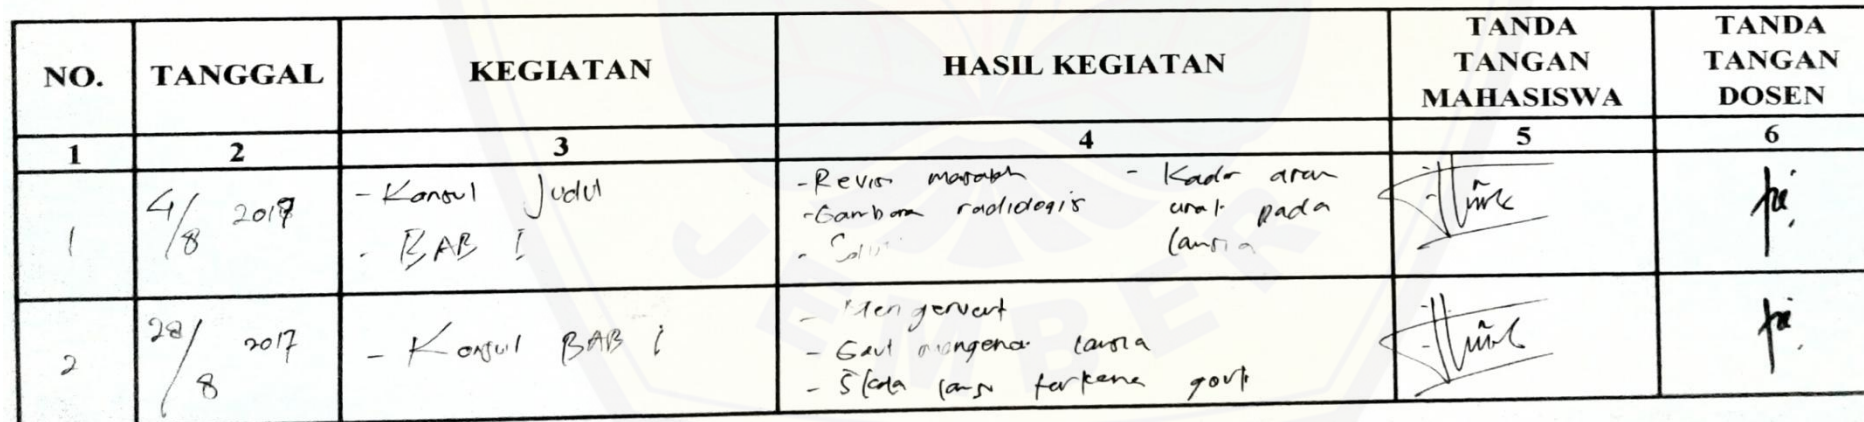 NO. TANGGAL KEGIATAN HASIL KEGIATAN TANDA TANGAN MAHASISWA TANDA TANGAN DOSEN
1 2 3 4 5 6
1 4/8 2017 - Konsul Judul
- BAB I
- Revisi masalah
- Gambaran radiologis
- Kadar asam
urat pada
lansia
2 28/8 2017 - Konsul BAB I
- Gout mengenai lansia
- Skala lansi terkena gout
JEMBER